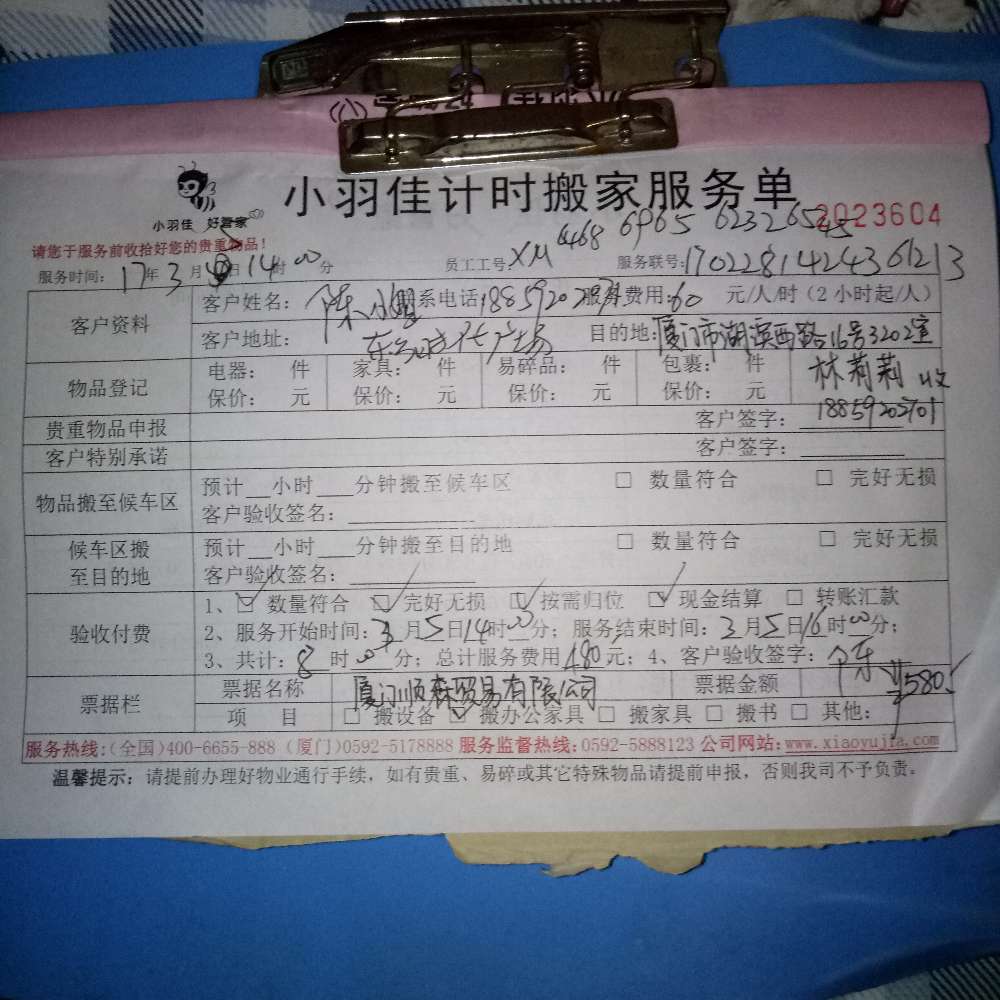 小羽佳 好管家
小羽佳计时搬家服务单
2023604
请您于服务前收拾好您的贵重物品!
服务时间: 17年3月5日14时00分 员工工号: XM 4468 6965 6232 6545 服务联号: 1702281424361213
客户资料 客户姓名: 陈小姐 联系电话: 18859202701 服务费用: 60 元/人/时(2小时起/人)
客户地址: 目的地: 厦门市湖滨西路16号3202室
物品登记 电器: 件 家具: 件 易碎品: 件 包裹: 件 林莉莉 收
保价: 元 保价: 元 保价: 元 保价: 元
18859202701
贵重物品申报 客户签字:
客户特别承诺 客户签字:
物品搬至候车区 预计__小时___分钟搬至候车区 □ 数量符合 □ 完好无损
客户验收签名:
候车区搬至目的地 预计__小时___分钟搬至目的地 □ 数量符合 □ 完好无损
客户验收签名:
验收付费 1、☑ 数量符合 ☑ 完好无损 ☑ 按需归位 ☑ 现金结算 □ 转账汇款
2、服务开始时间: 3月5日14时00分; 服务结束时间: 3月5日16时00分;
3、共计: 8时00分; 总计服务费用480元; 4、客户验收签字: 陈
票据栏 票据名称 厦门顺森贸易有限公司 票据金额 ¥580
项 目 □ 搬设备 ☑ 搬办公家具 □ 搬家具 □ 搬书 □ 其他:
服务热线:(全国)400-6655-888 (厦门)0592-5178888 服务监督热线: 0592-5888123 公司网站: www.xiaoyujia.com
温馨提示: 请提前办理好物业通行手续,如有贵重、易碎或其它特殊物品请提前申报,否则我司不予负责。